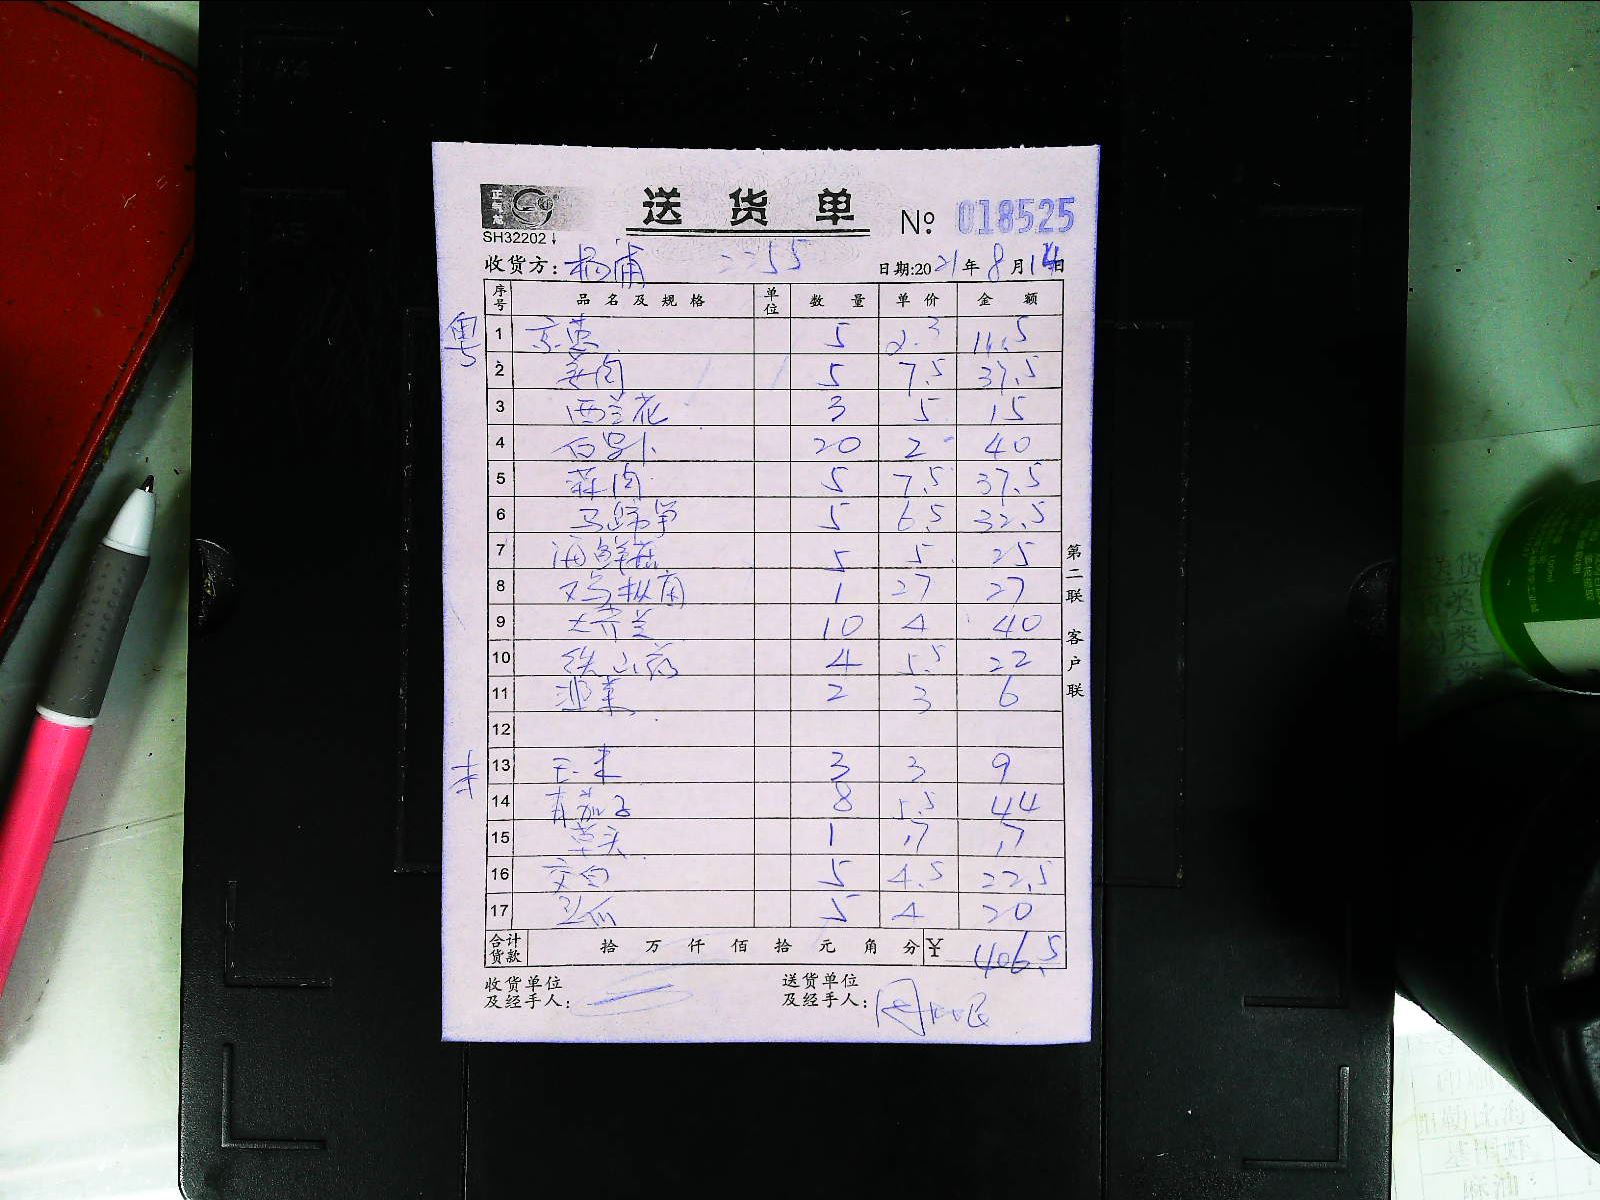 送货单 № 018525
SH32202
收货方: 杨浦 2255 日期:2021年8月14日
序号 品名及规格 单位 数量 单价 金额
粤
1 京葱 5 2.3 11.5
2 姜肉 5 7.5 37.5
3 西兰花 3 5 15
4 白萝卜 20 2 40
5 蒜肉 5 7.5 37.5
6 马蹄笋 5 6.5 32.5
7 海鲜菇 5 5 25
8 鸡枞菌 1 27 27
9 大芥兰 10 4 40
10 铁山药 4 5.5 22
11 韭菜 2 3 6
12
13 玉米 3 3 9
14 青茄子 8 5.5 44
15 草头 1 17 17
16 茭白 5 4.5 22.5
17 黄瓜 5 4 20
合计货款 拾万仟佰拾元角分 ¥ 406.5
收货单位及经手人:
送货单位及经手人:
第二联 客户联